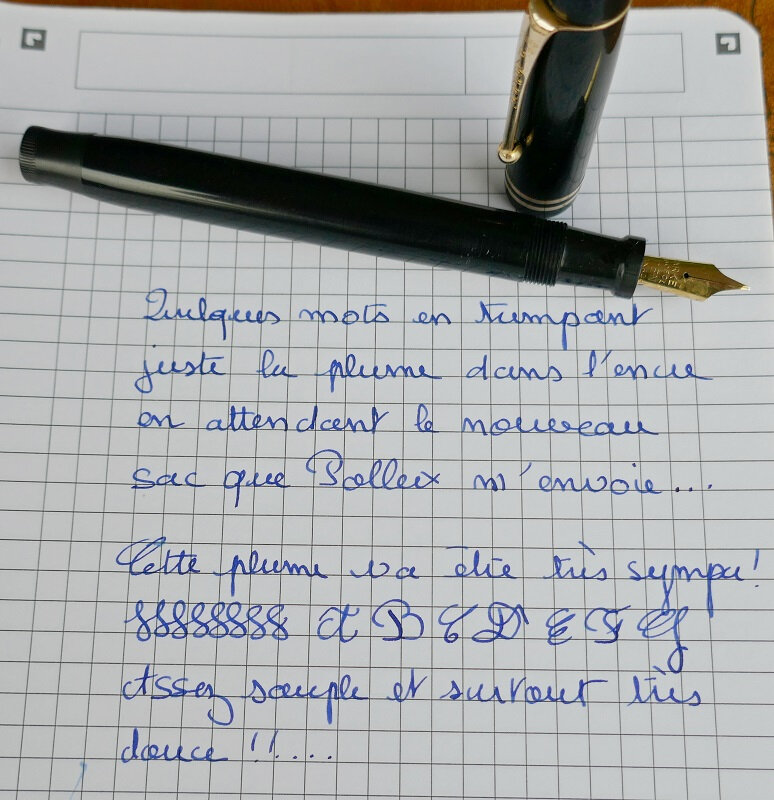 Quelques mots en trempant
juste la plume dans l'encre
en attendant le nouveau
sac que Pollex m'envoie...
Cette plume va être très sympa!
8888888888 A B C D E F G
Assez souple et surtout très
douce !!....